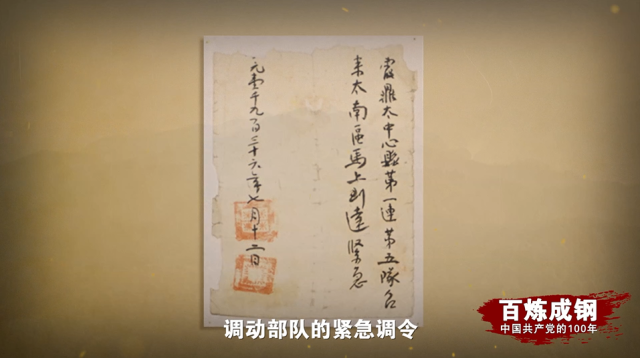 霞鼎太中心縣第一連第五隊召
來太南區馬上到達緊急
元壹千九百三十六年七月十二日
调动部队的紧急调令
百炼成钢
中国共产党的100年